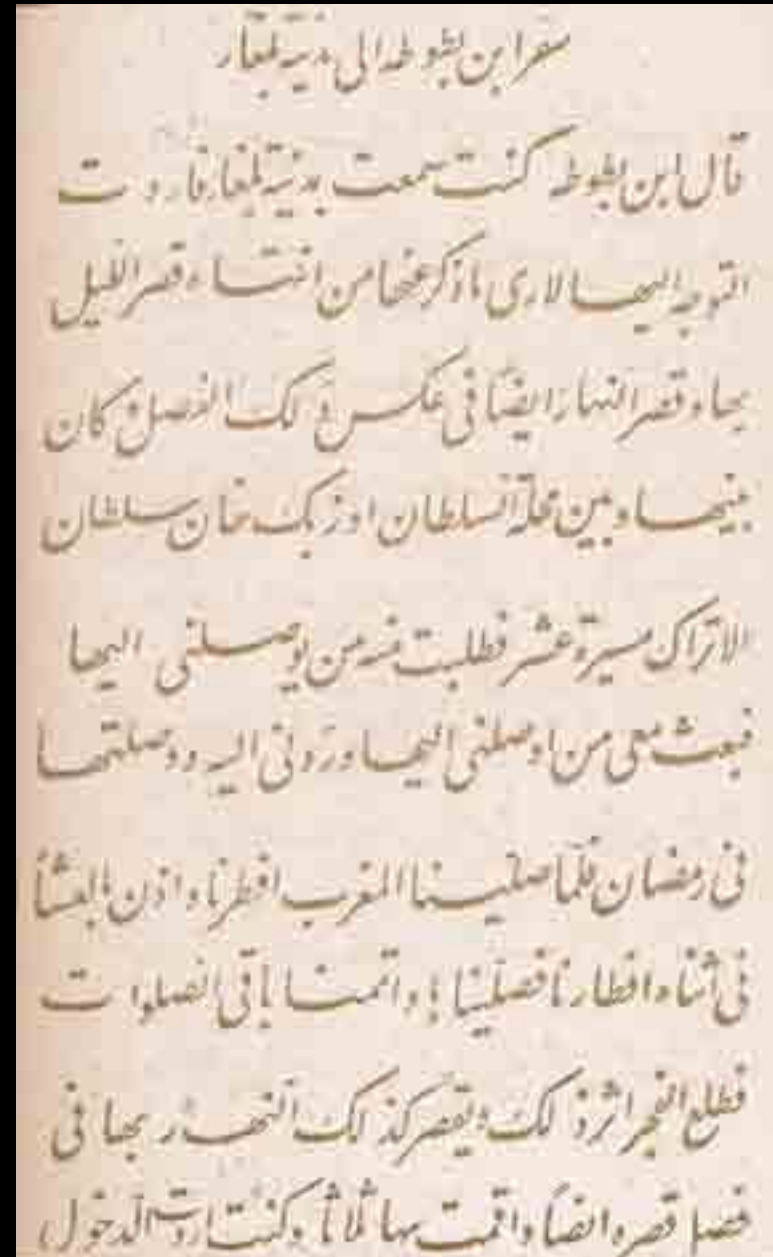 سفر ابن بطوطه الى مدينة بلغار
قال ابن بطوطه كنت سمعت بمدينة بلغار فاردت
التوجه اليها لارى ما ذكر عنها من انتهاء قصر الليل
بها وقصر النهار ايضًا فى عكس ذلك الفصل وكان
بينها وبين محلة السلطان اوزبك خان سلطان
الاتراك مسيرة عشر فطلبت منه من يوصلنى اليها
فبعث معى من اوصلنى اليها وردنى اليه ووصلتها
فى رمضان فلمّا صلينا المغرب افطرنا واذن بالعشأ
فى أثناء افطارنا فصلّينا ها واتمنا باقى الصلوات
فطلع الفجر اثر ذلك ويقصر كذلك النهار بها فى
فصل قصره ايضًا واقمت بها ثلاثًا وكنت اردت الدخول